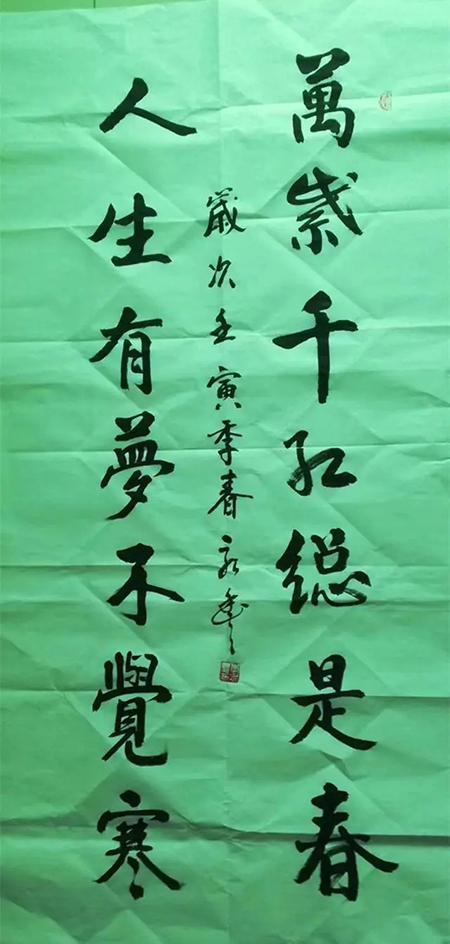 萬紫千紅總是春
人生有夢不覺寒
歲次壬寅季春